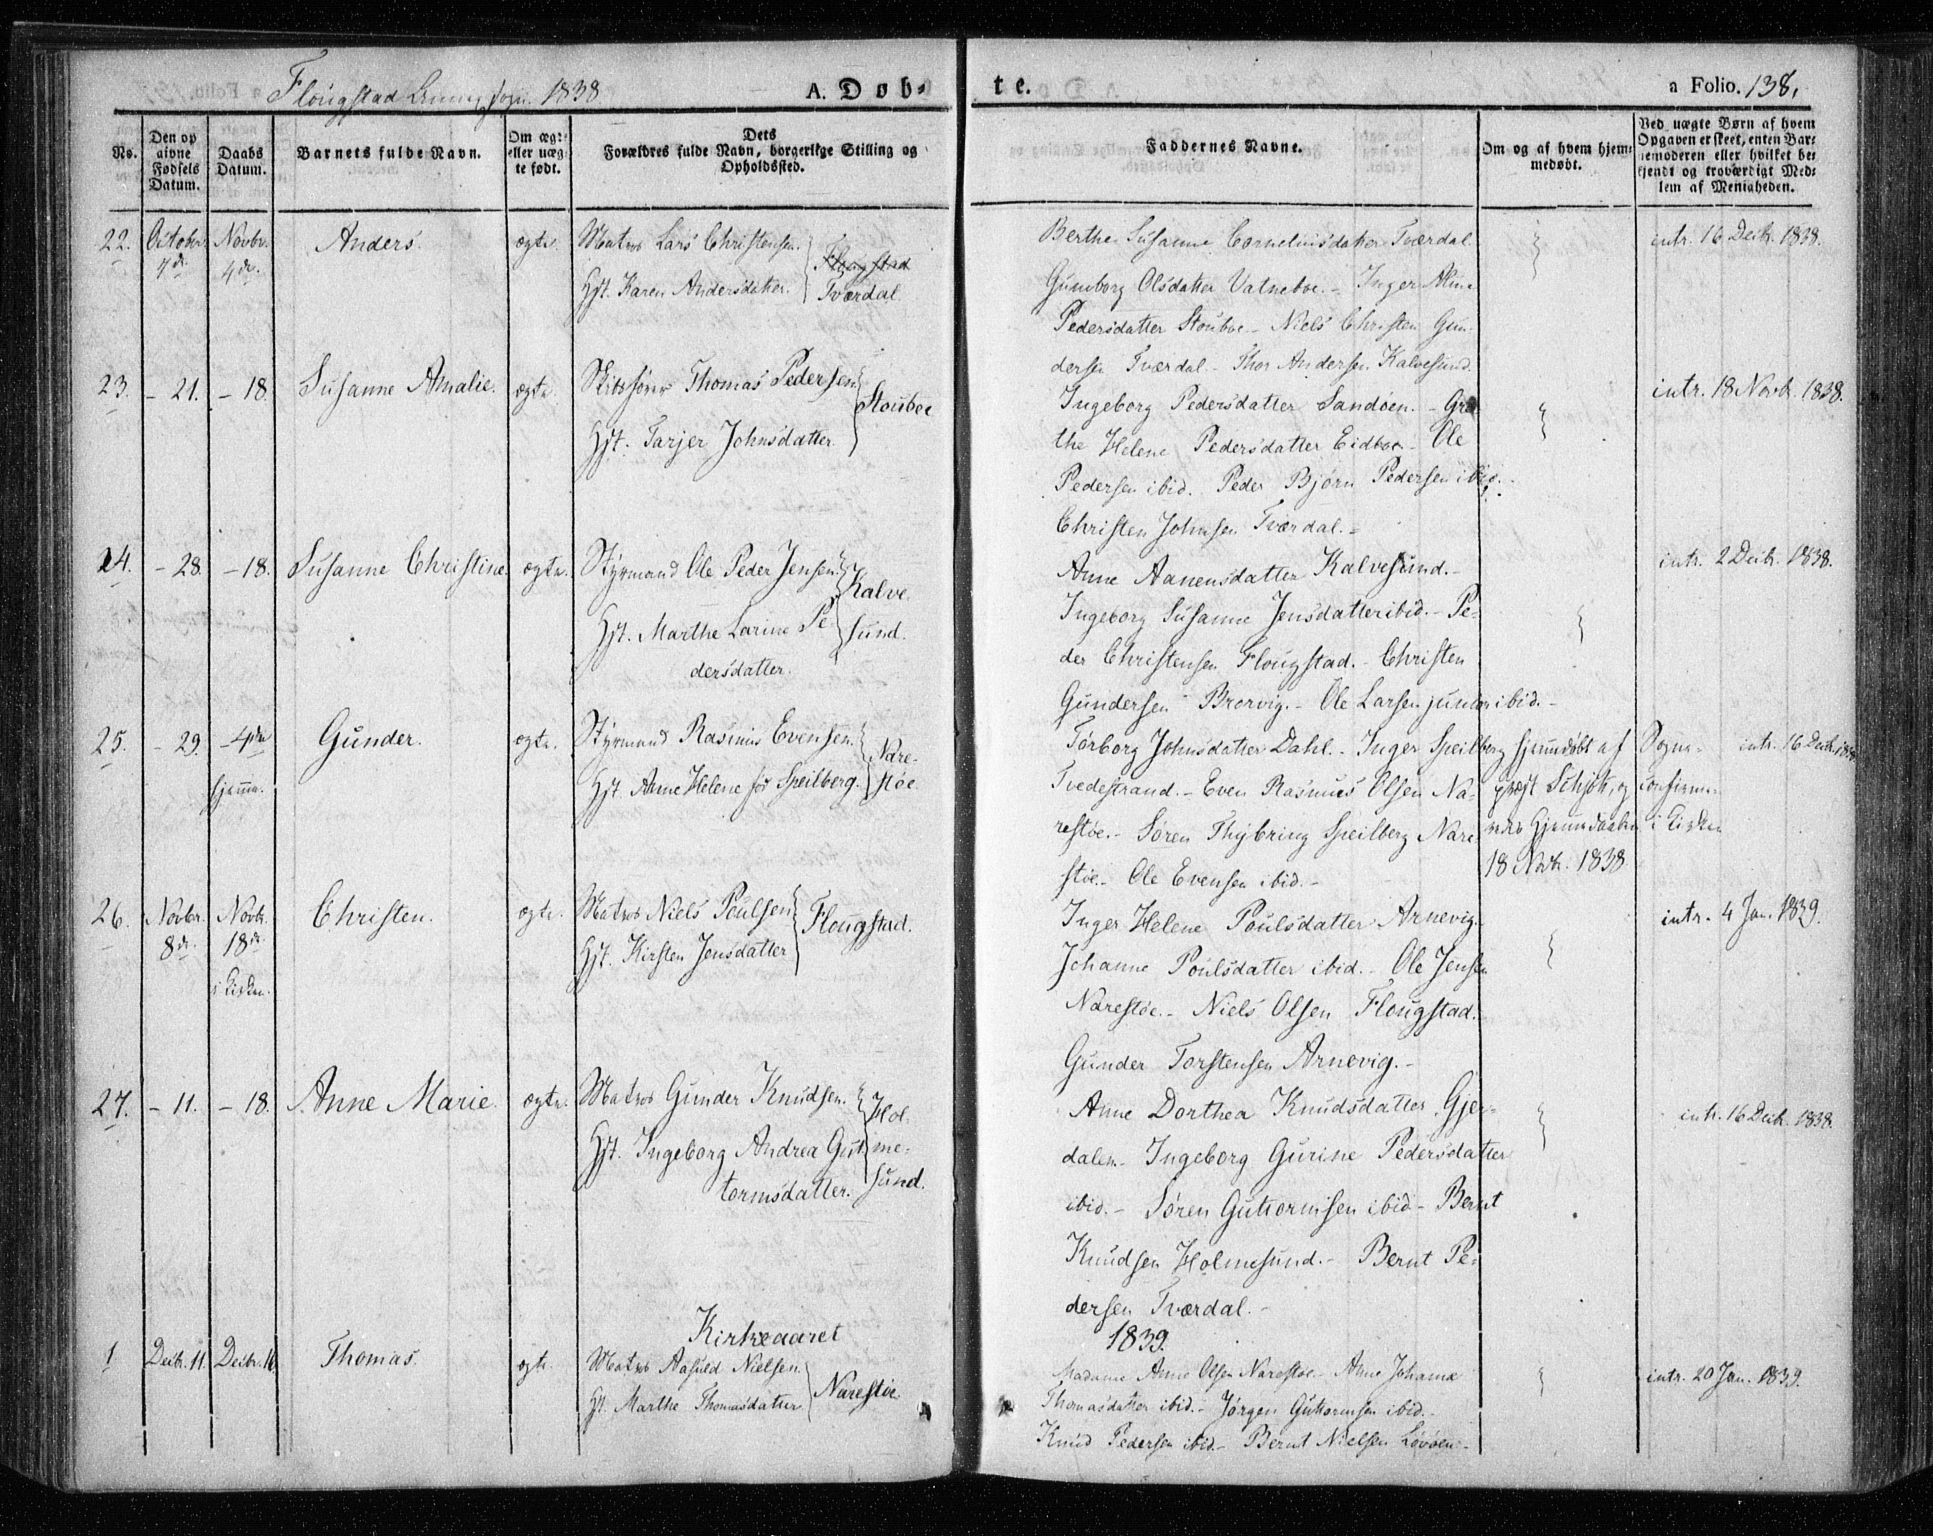 Flougstad sogn 1838
A. Døb-
te.
a Folio. 138.
No.
Den op
givne
Fødsels
Datum.
Daabs
Datum.
Barnets fulde Navn.
Om æg-
eller uæg-
te født.
Dets
Forældres fulde Navn, borgerlige Stilling og
Opholdssted.
Faddernes Navne.
Om og af hvem hjem-
medøbt.
Ved uægte Børn af hvem
Opgaven er skeet, enten Bar-
nemoderen eller hvilket be-
kjendt og troværdigt Med-
lem af Menigheden.
22. October 4de Novbr. 4de.
Anders.
ægte.
Matros Lars Christensen.
Hst. Karen Andersdatter.
Flougstad
Tværdal.
Berthe Susanne Corneliusdatter Tværdal
Gunborg Olsdatter Vatneboe. - Inger Aline
Pedersdatter Stouboe - Niels Christen Gun-
dersen Tværdal. - Thor Andersen Kalvesund.
intr. 16 Decbr. 1838.
23. - 21. - 18.
Susanne Amalie.
ægte.
Thomas Pedersen
Hst. Tarjer Johnsdatter
Stouboe
Ingeborg Pedersdatter Sandøen. - Gre-
the Helene Pedersdatter Eidboe - Ole
Pedersen ibid. Peder Bjørn Pedersen ibid. -
Christen Johnsen Tværdal. -
intr. 18 Novbr. 1838.
24. - 28. - 18.
Susanne Christine.
ægte.
Styrmand Ole Peder Jensen.
Hst. Marthe Larine Pe-
dersdatter.
Kalve-
sund.
Anne Aanensdatter Kalvesund. -
Ingeborg Susanne Jensdatter ibid. - Pe-
der Christensen Flougstad. - Christen
Gundersen Brorvig. - Ole Larsen junior ibid. -
intr. 2 Decbr. 1838.
25. - 29. - 4de
hjemme.
Gunder.
ægte.
Styrmand Rasmus Evensen.
Hst. Anne Helene fød Speilberg.
Nare-
støe
Torborg Johnsdatter Dahl. - Inger Speilberg
Tvedestrand. - Even Rasmus Olsen Na-
restøe. - Søren Thybring Speilberg Nare-
støe. - Ole Evensen ibid. -
hjemmdøbt af Sogne-
præst Schjøth, og confirme-
redes Hjemmedaaben i Kirken
18 Novbr. 1838
intr. 16 Decbr. 1838
26. Novbr. 8de. Novbr. 18de
i Kirken.
Christen.
ægte.
Matros Niels Poulsen
Hst. Kirsten Jensdatter
Flougstad.
Inger Helene Poulsdatter Arnevig. -
Johanne Poulsdatter ibid. - Ole Jensen
Narestøe. - Niels Olsen Flougstad.
Gunder Torstensen Arnevig. -
intr. 4 Jan. 1839.
27. - 11. - 18.
Anne Marie.
ægte.
Matros Gunder Knudsen.
Hst. Ingeborg Andrea Gut-
tormsdatter.
Hol-
me-
sund.
Anne Dorthea Knudsdatter Gjer-
dalen. Ingeborg Gurine Pedersdatter
ibid. - Søren Guttormsen ibid - Bernt
Knudsen Holmesund. - Bernt Pe-
dersen Tværdal. -
intr. 16 Decbr. 1838.
Kirkeaaret
1839.
1 Decbr. 11. Decbr. 16
Thomas.
ægte
Matros Aasuld Nielsen.
Hst. Marthe Thomasdatter
Narestøe
Madame Anne Olsen Narestøe - Anne Johanne
Thomasdatter ibid. - Jørgen Guttormsen ibid. -
Knud Pedersen ibid - Bernt Nielsen Løvøen. -
intr. 20 Jan. 1839.